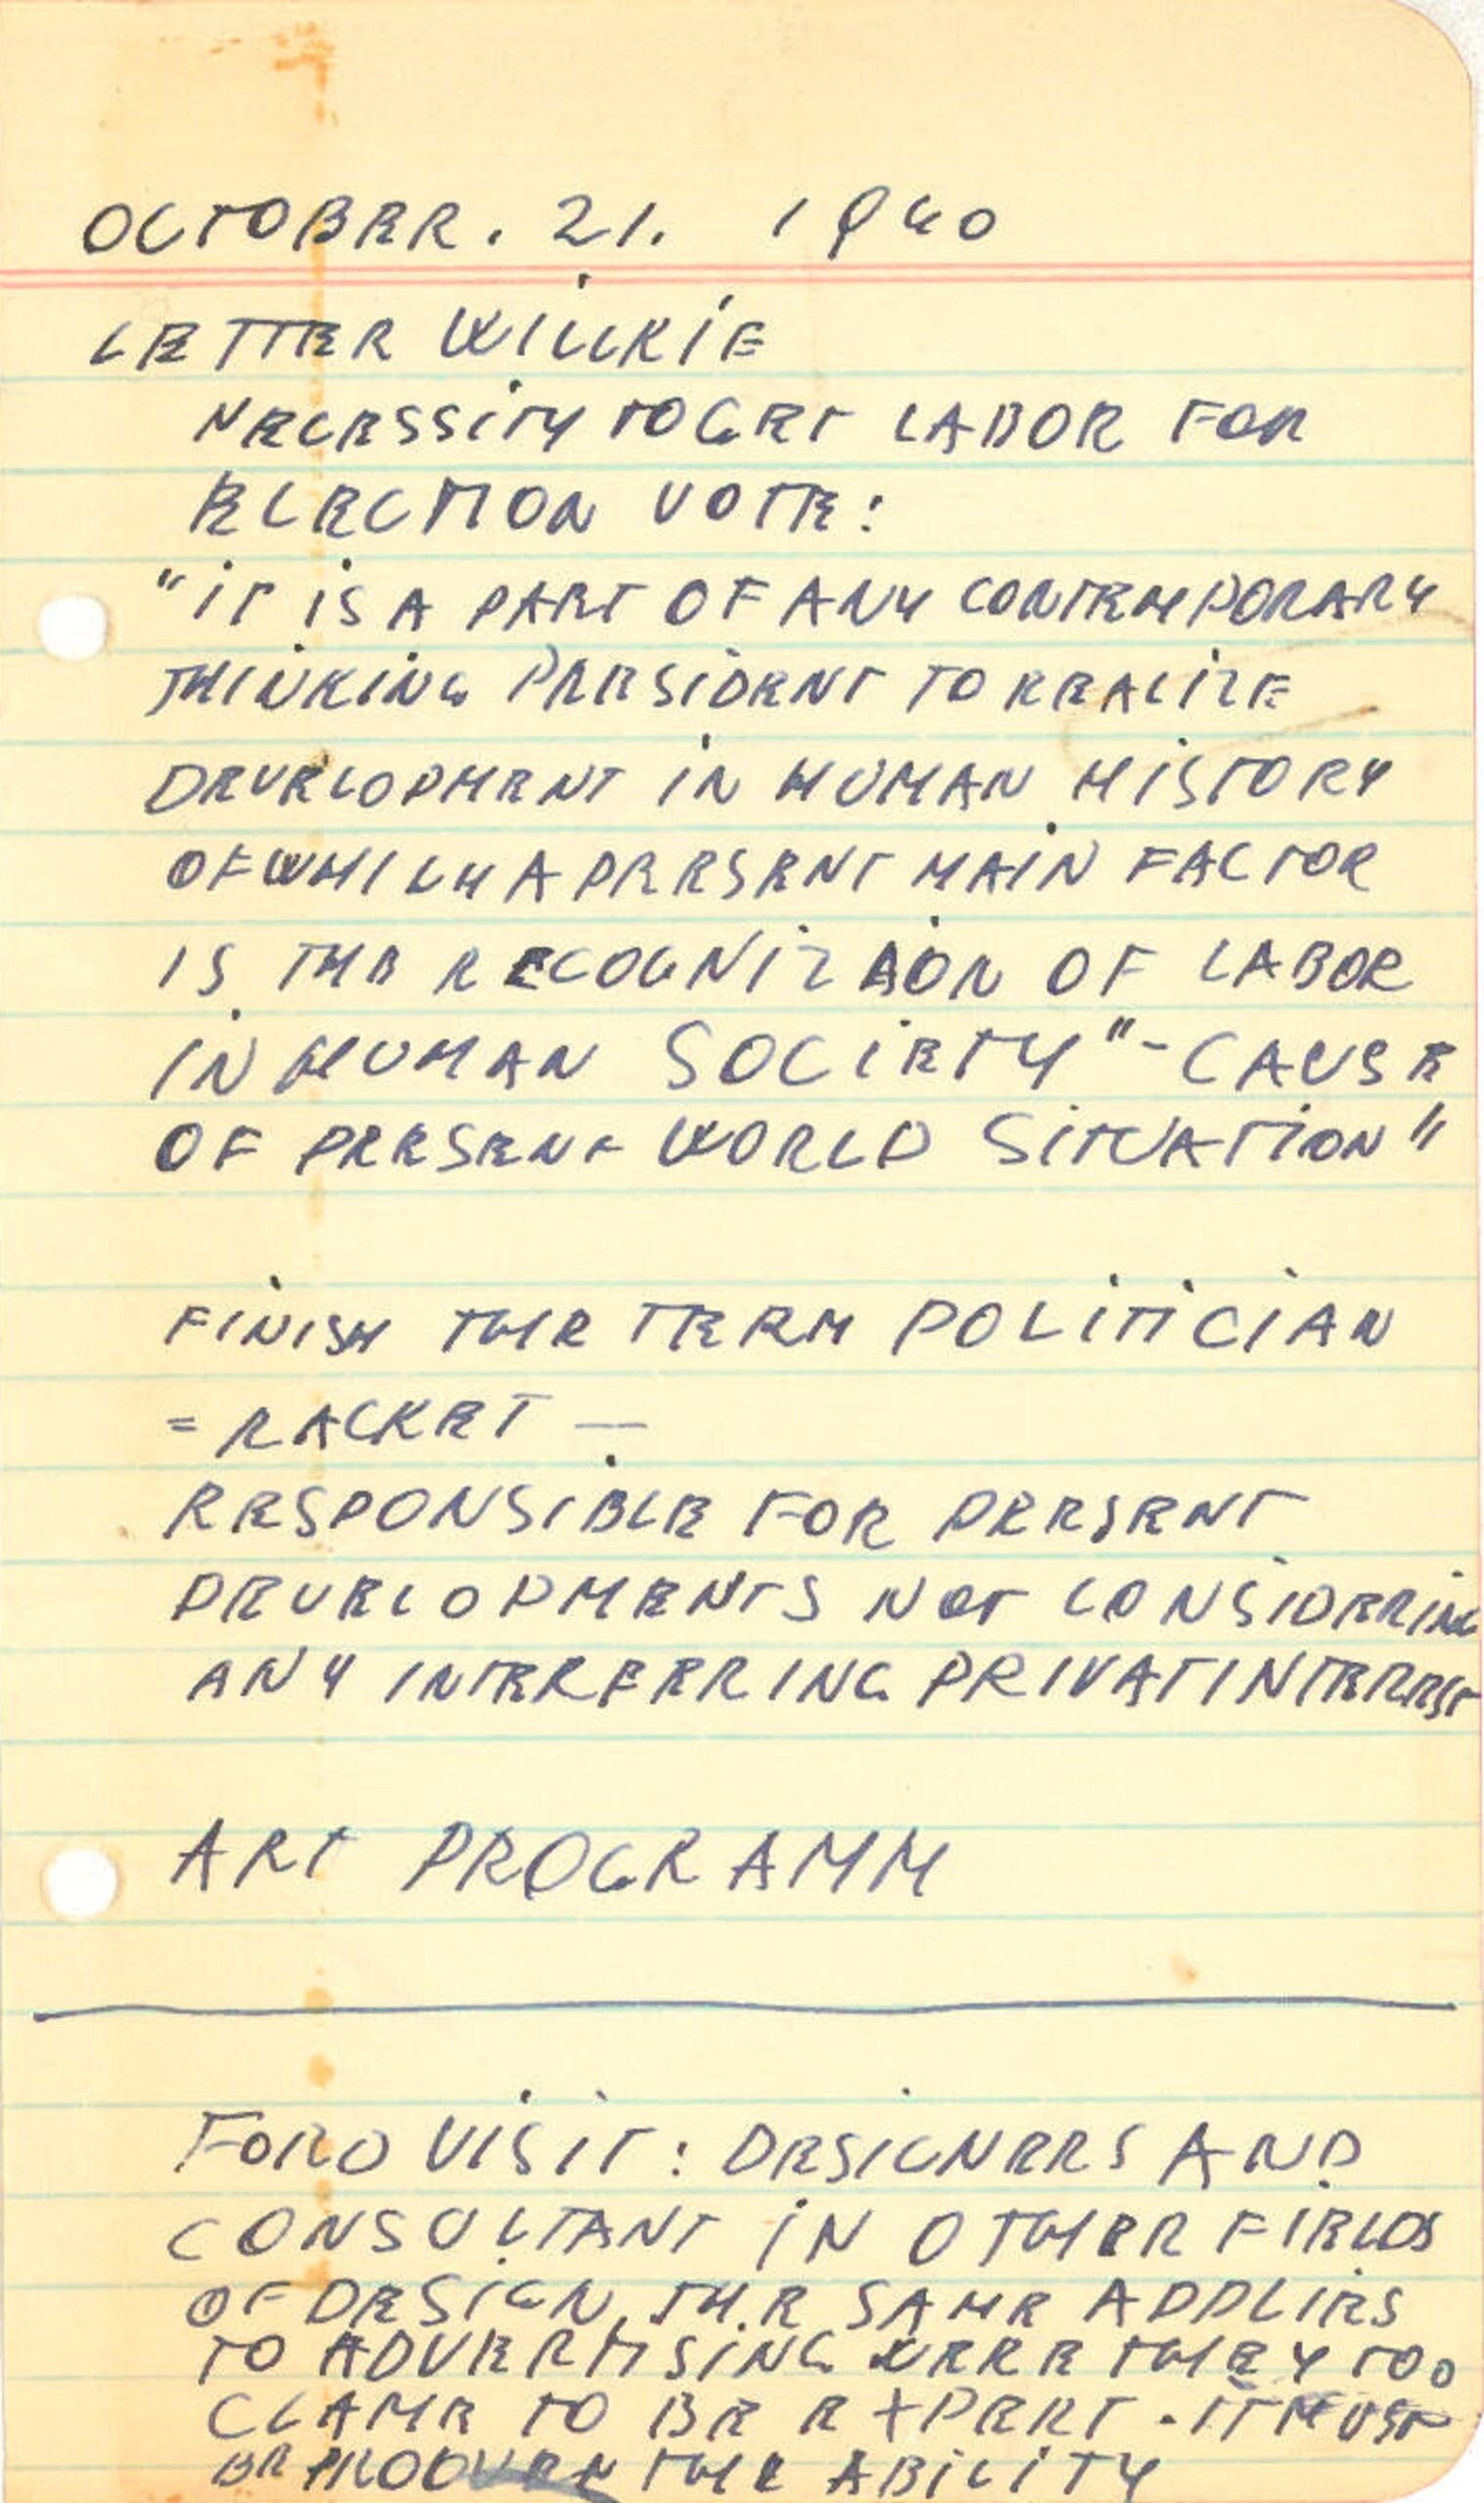 OCTOBER. 21. 1940
LETTER WILLKIE
NECESSITY TO GET LABOR FOR
ELECTION VOTE:
"IT IS A PART OF ANY CONTEMPORARY
THINKING PRESIDENT TO REALIZE
DEVELOPMENT IN HUMAN HISTORY
OF WHICH A PRESENT MAIN FACTOR
IS THE RECOGNIZAON OF LABOR
IN HUMAN SOCIETY"-CAUSE
OF PRESENT WORLD SITUATION"
FINISH THE TERM POLITICIAN
= RACKET —
RESPONSIBLE FOR PRESENT
DEVELOPMENTS NOT CONSIDERING
ANY INTERFERRING PRIVATINTEREST
ART PROGRAMM
FORD VISIT: DESIGNERS AND
CONSULTANT IN OTHER FIELDS
OF DESIGN, THE SAME APPLIES
TO ADVERTISING WERE THEY TOO
CLAME TO BE EXPERT. IT MUST
BE THE ABILITY